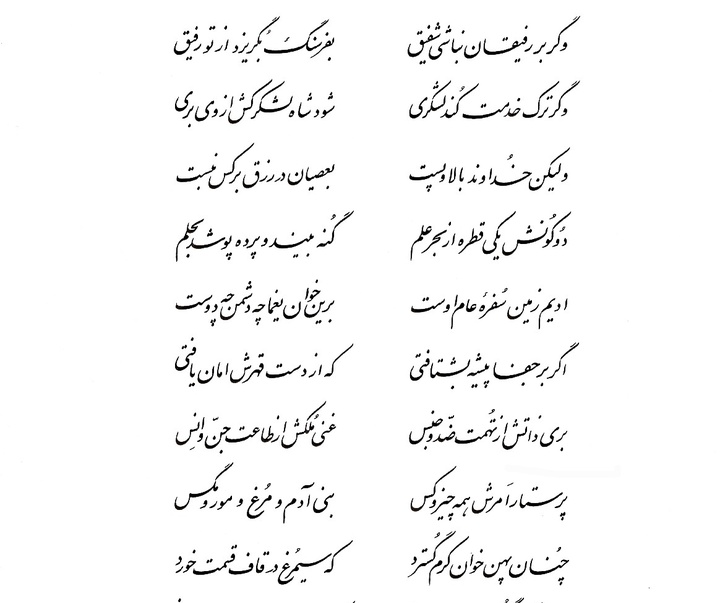 وگر بر رفیقان نباشی شفیق بفرسنگ بگریزد از تو رفیق
وگر ترک خدمت کند لشکری شود شاه لشکرکش از وی بری
ولیکن خداوند بالا و پست بعصیان در رزق بر کس نبست
دو کونش یکی قطره از بحر علم گنه بیند و پرده پوشد بحلم
ادیم زمین سفرهٔ عام اوست برین خوان یغما چه دشمن چه دوست
اگر بر جفا پیشه بشتافتی که از دست قهرش امان یافتی
بری ذاتش از تهمت ضدّ و جنس غنی مُلکش از طاعت جنّ و انس
پرستار اَمرش همه چیز و کس بنی آدم و مُرغ و مور و مگس
چُنان پهن خوان کرم گُسترد که سیمُرغ در قاف قسمت خورد